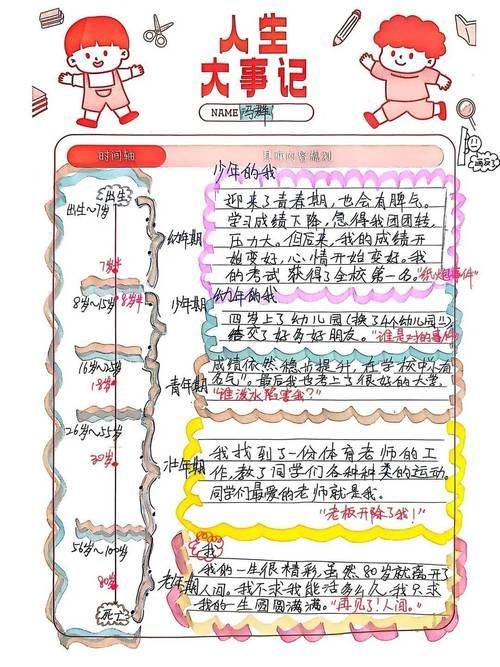 人生
大事记
NAME
时间轴
具体内容规划
少年的我
出生
出生~7岁
7岁半
幼年期
迎来了青春期，也会有脾气。
学习成绩下降，急得我团团转，
压力大。但后来，我的成绩开
始变好，心情开始变好。我
的考试获得了全校第一名。"纸炮事件"
8岁~15岁
8岁半
少年期
幼年的我
四岁上了幼儿园（换了4个幼儿园!!）
结交了好多好朋友。"谁是对的事件"
16岁~25岁
18岁
青年期
成绩依然稳步提升，在学校"小有
名气"。最后我也考上了很好的大学。
"谁泼水陷害我？"
26岁~55岁
30岁
壮年期
我找到了一份体育老师的工
作，教了同学们各种种类的运动。
同学们最爱的老师就是我。
"老板开除了我！"
56岁~100岁
80岁
老年期
死亡
我
我的一生很精彩，虽然80岁就离开了
人间。我不求我能活多么久，我只求
我的一生圆圆满满。"再见了！人间。"